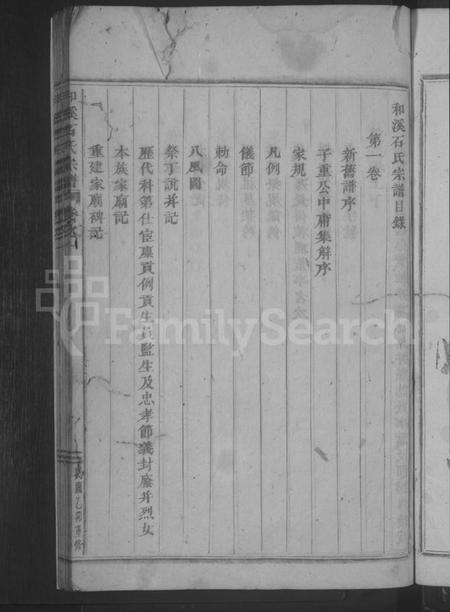 和溪石氏宗譜目錄
第一卷
新舊譜序
子重公中庸集解序
家規
凡例
儀節
勅命
八風圖
祭丁說并記
歷代科第仕宦廩貢例貢生員監生及忠孝節義封廕并烈女
本族家廟記
重建家廟碑記
和溪石氏宗譜
民國乙卯重修
FamilySearch